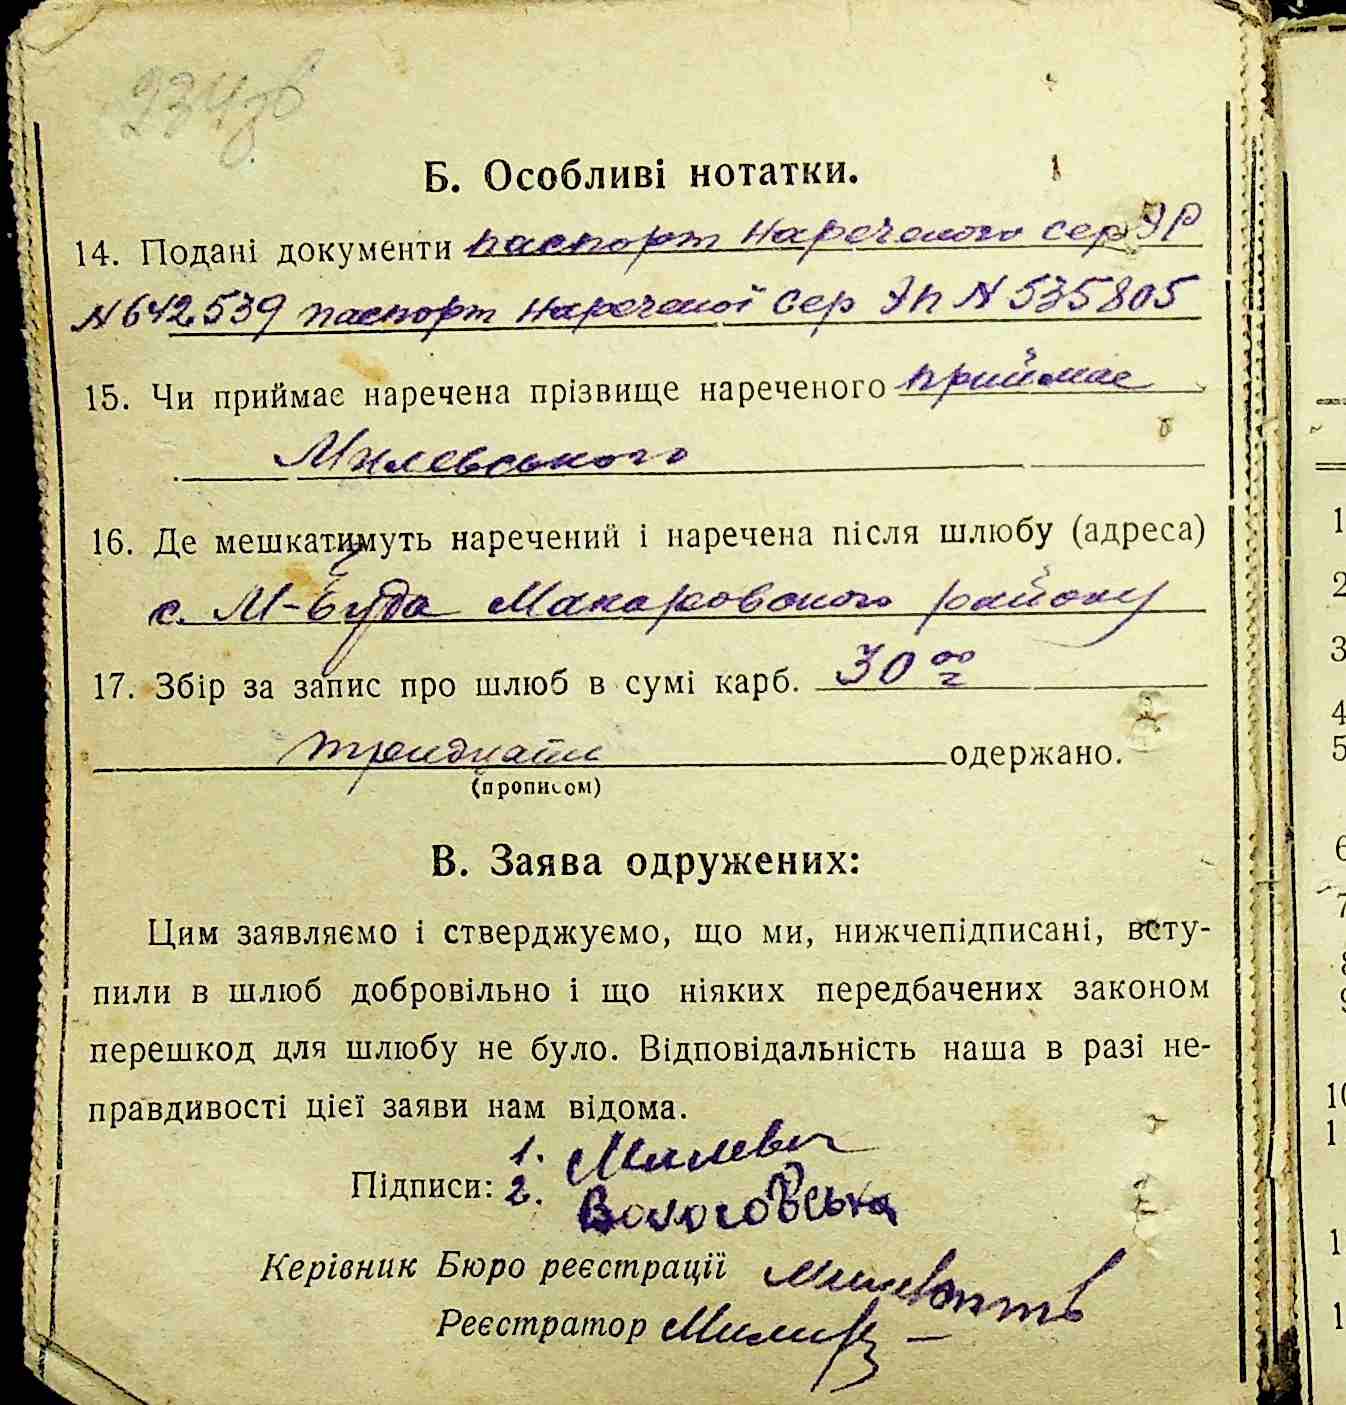 234зв
Б. Особливі нотатки.
14. Подані документи паспорт Нареченого сер ЭР
N 642539 паспорт Нареченої Сер ЭП N 535805
15. Чи приймає наречена прізвище нареченого приймає
Милевського
16. Де мешкатимуть наречений і наречена після шлюбу (адреса)
с. М-Буда Макаровського району
17. Збір за запис про шлюб в сумі карб. 30 00
тридцать одержано.
(прописом)
В. Заява одружених:
Цим заявляємо і стверджуємо, що ми, нижчепідписані, всту-
пили в шлюб добровільно і що ніяких передбачених законом
перешкод для шлюбу не було. Відповідальність наша в разі не-
правдивості цієї заяви нам відома.
1.
Підписи: 2. Вологовська
Керівник Бюро реєстрації
Реєстратор
1
2
3
4
5
6
7
8
9
10
1
1
1